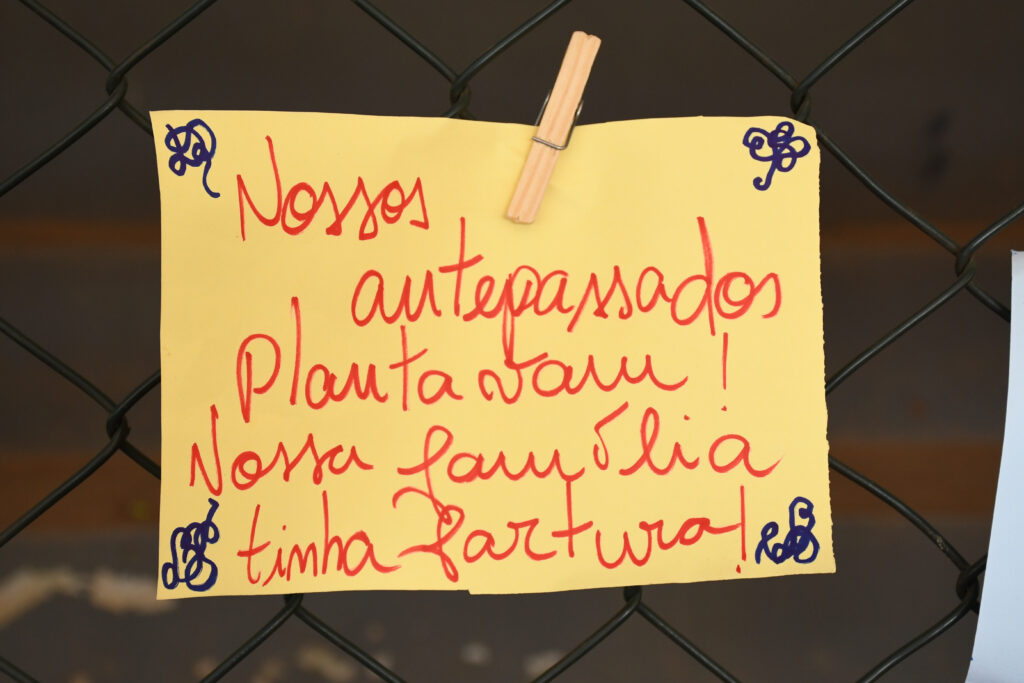 Nossos
antepassados
Plantavam!
Nossa família
tinha fartura!